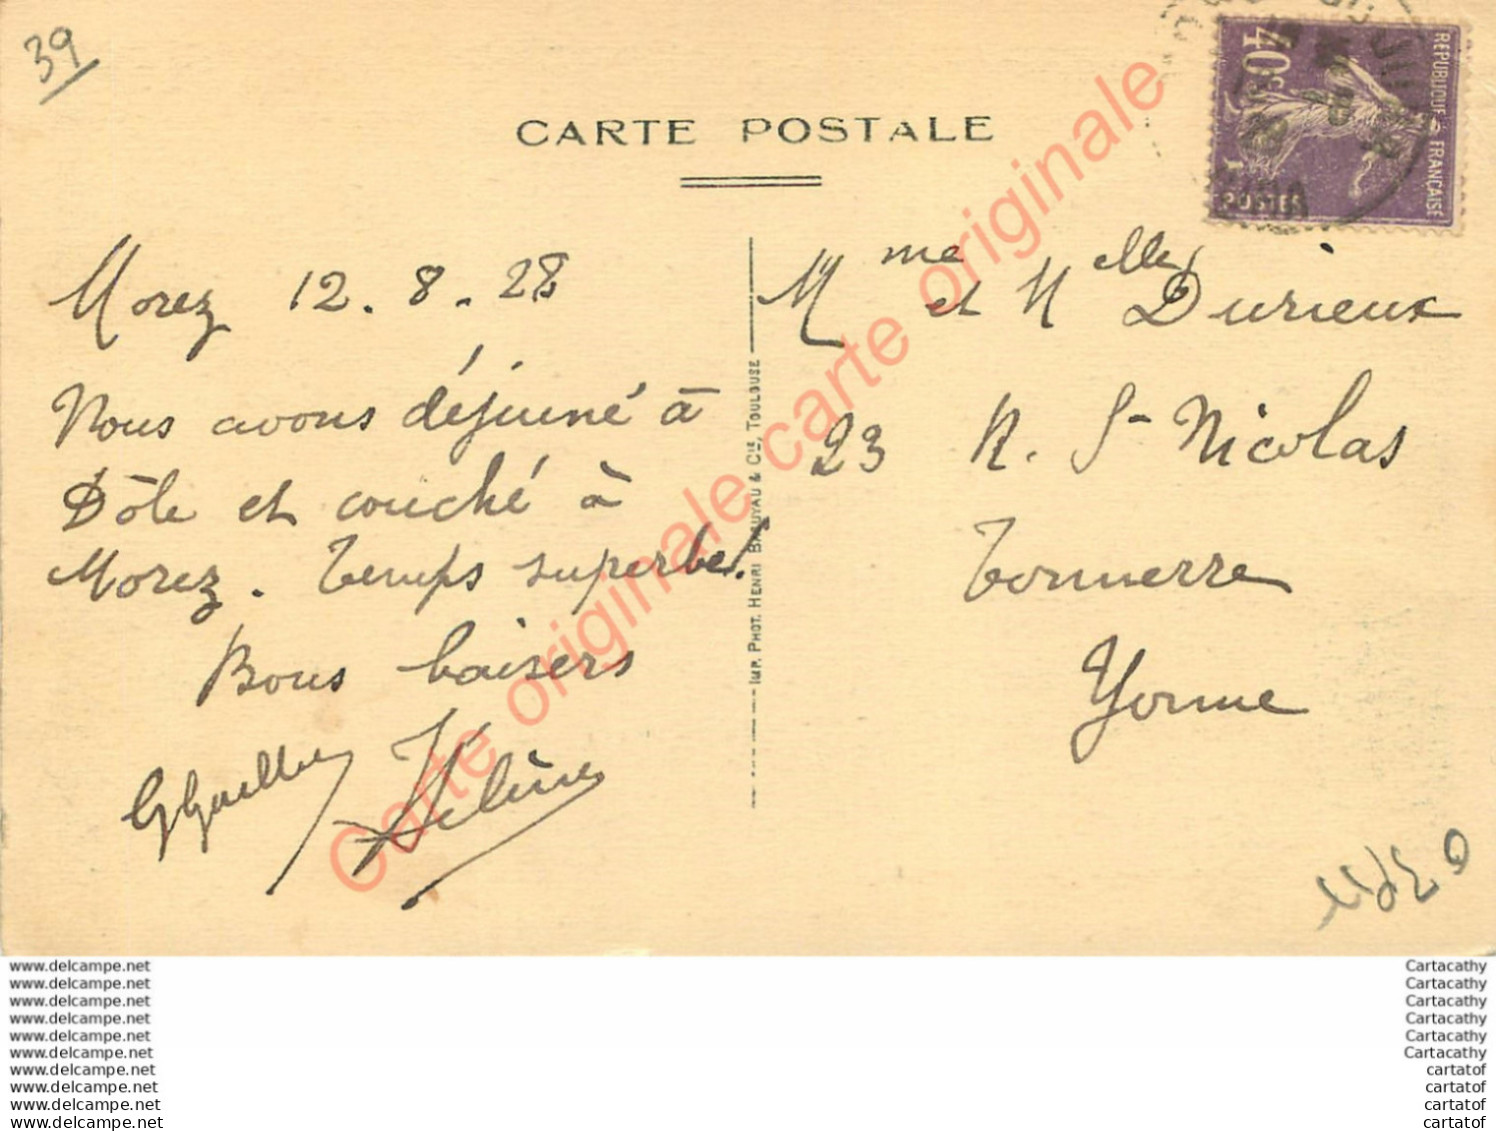 39
CARTE POSTALE
40c
RÉPUBLIQUE FRANÇAISE
POSTES
Morez 12.8.28
Nous avons déjeuné à
Dôle et couché à
Morez. Temps superbe!
Bons baisers
Hélène
IMP. PHOT. HENRI BASUYAU & Cie, TOULOUSE
Mme et Melle Durieux
23 R. St Nicolas
Tonnerre
Yonne
Carte originale carte originale carte originale
www.delcampe.net
www.delcampe.net
www.delcampe.net
www.delcampe.net
www.delcampe.net
www.delcampe.net
www.delcampe.net
www.delcampe.net
www.delcampe.net
www.delcampe.net
Cartacathy
Cartacathy
Cartacathy
Cartacathy
Cartacathy
Cartacathy
cartatof
cartatof
cartatof
cartatof